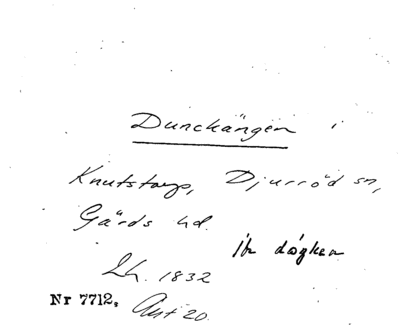 Dunckängen i
Knutstorp, Djurröd sn,
Gärds hd.
dógken
Lh. 1832
Nr 7712. Akt 20.